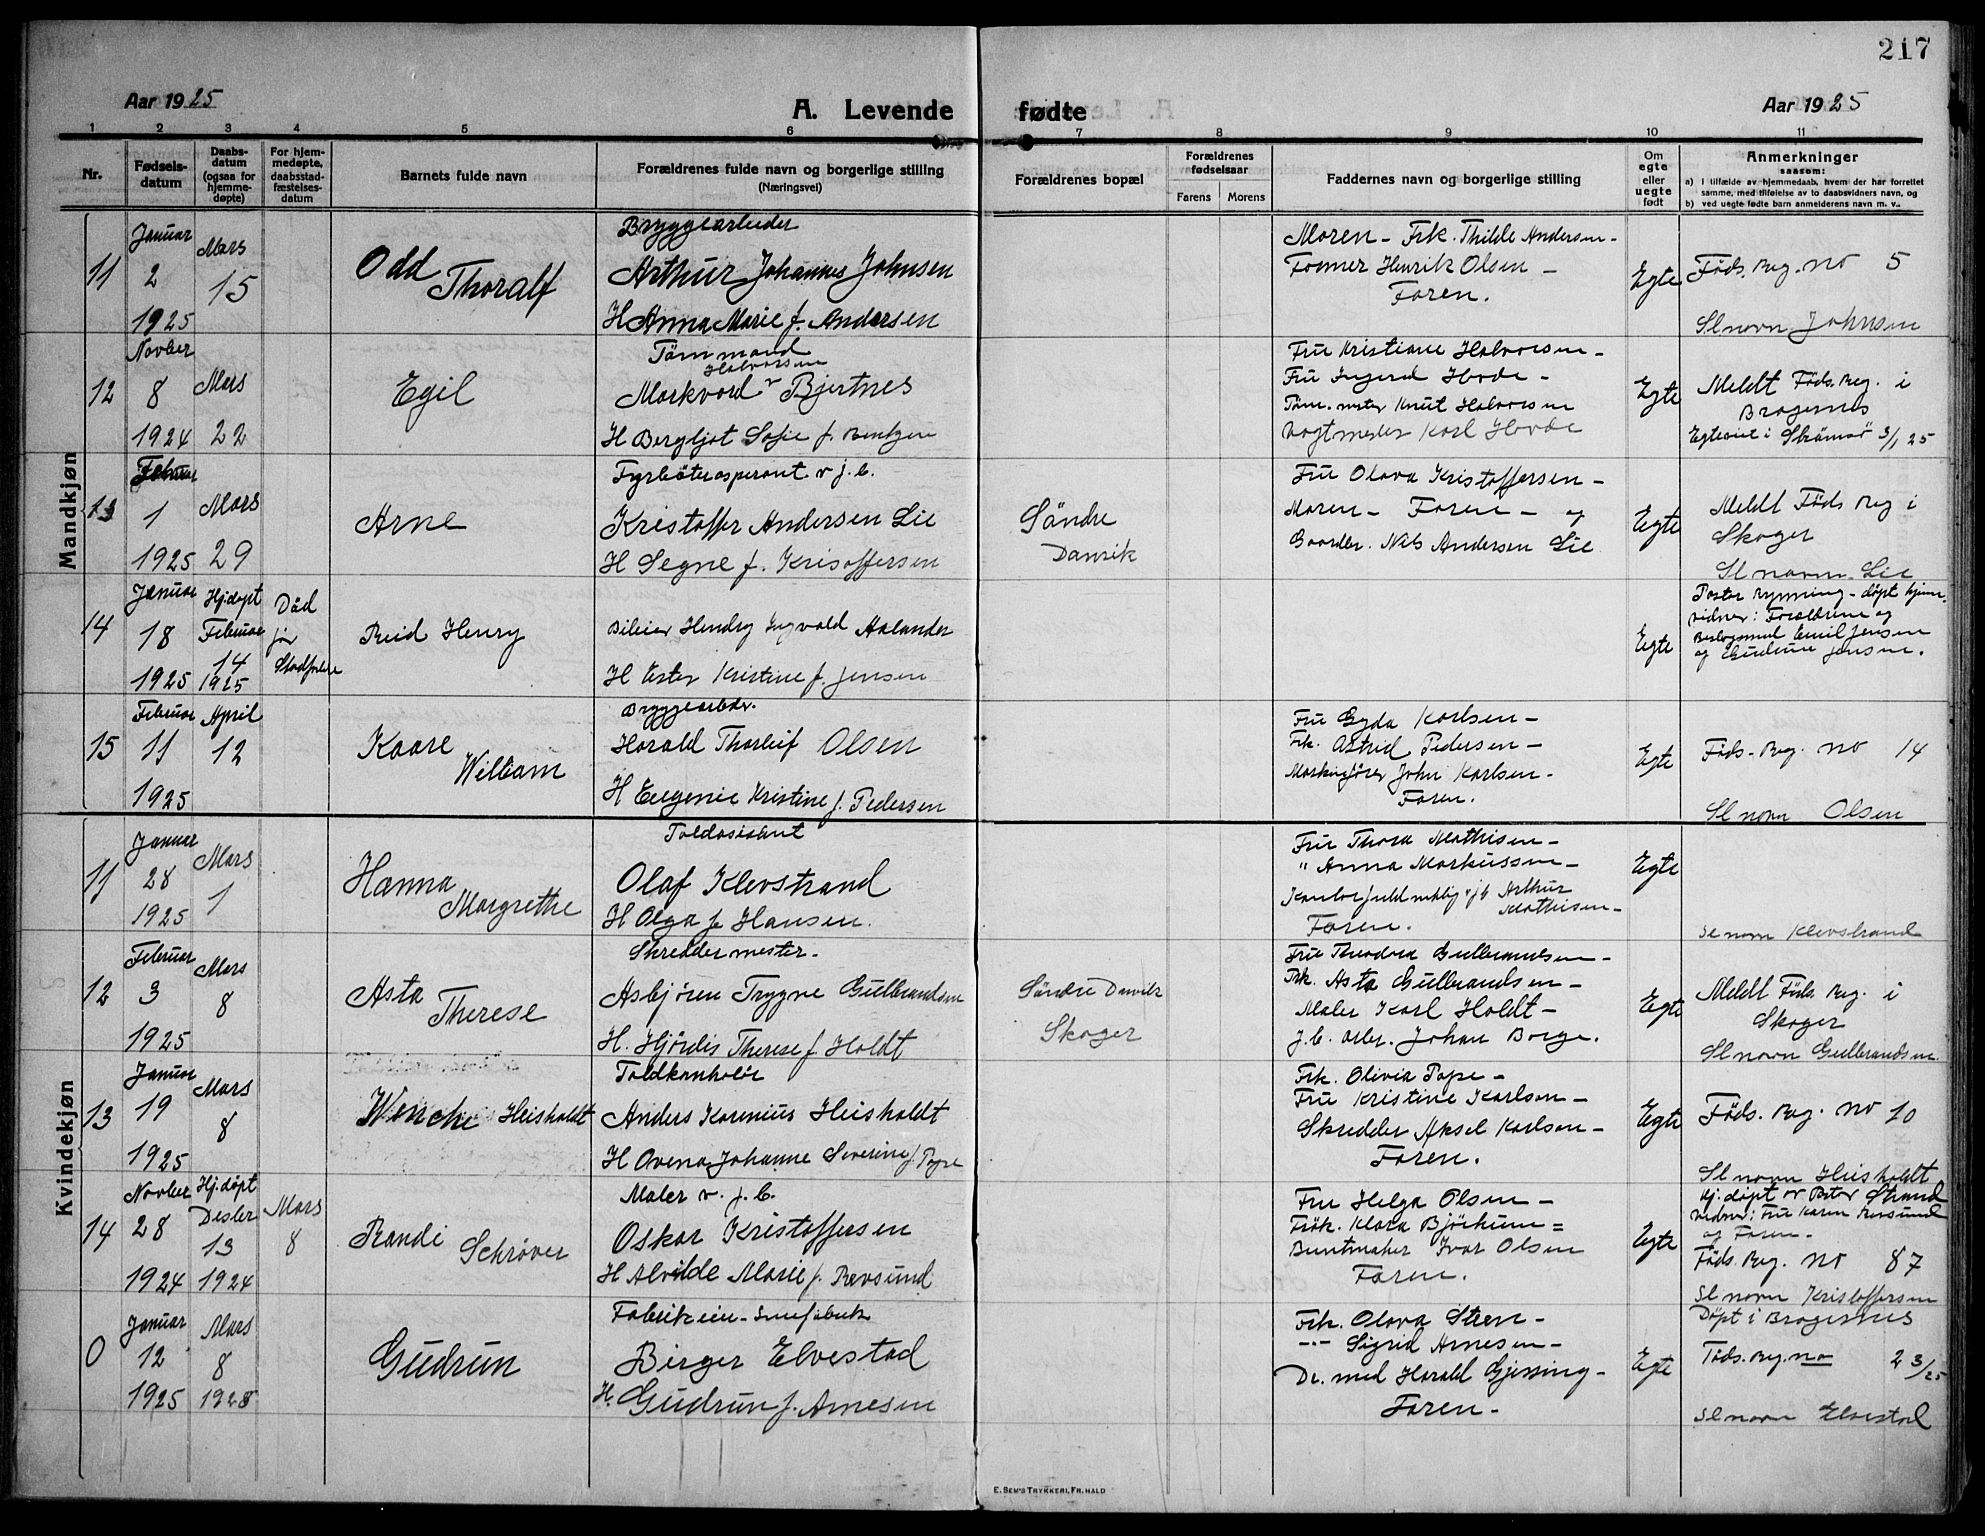 217
Aar 1925
A. Levende fødte
Aar 1925
1 2 3 4 5 6 7 8 9 10 11
Nr.
Fødsels-
datum
Daabs-
datum
(ogsaa for
hjemme-
døpte)
For hjem-
medøpte,
daabsstad-
fæstelses-
datum
Barnets fulde navn
Forældrenes fulde navn og borgerlige stilling
(Næringsvei)
Forældrenes bopæl
Forældrenes
fødselsaar
Farens Morens
Faddernes navn og borgerlige stilling
Om
egte
eller
uegte
født
Anmerkninger
saasom:
a) I tilfælde av hjemmedaab, hvem der har forrettet
samme, med tilføielse av to daabsvidners navn, og
b) ved uegte fødte barn anmelderens navn m. v..
Mandkjøn
11
Januar
2
1925
Mars
15
Odd
Thoralf
Bryggearbeider
Arthur Johannes Johnsen
H Anna Marie f. Andersen
Moren - Frk. Thilde Andersen -
Henrik Olsen -
Faren.
Egte
Føds. Reg. no 5
Sl navn Johnsen
12
Novber
8
1924
Mars
22
Egil
Tømmand
Halvorsen
Markvard v Bjertnes
H Bergljot Sofie f. Bentzen
Fru Kristiane Halvorsen -
Fru Ingerd Hovde -
Tøm. mester Knut Halvorsen
Vogtmester Karl Hovde
Egte
Meldt Føds. Reg. i
Bragernes
Egteviet i Strømsø 3/1 25
13
Februar
1
1925
Mars
29
Arne
Fyrbøteraspirant v j. b.
Kristoffer Andersen Lie
H Segne f. Kristoffersen
Søndre
Danvik
Fru Olava Kristoffersen -
Moren - Faren - og
Gaardbr. Nils Andersen Lie
Egte
Meldt Føds Reg i
Skoger
Sl navn Lie
14
Januar
18
1925
Hj.døpt
Februar
14
1925
Død
før
Stadfestelse
Reid Henry
Bileier Hendry Ingvald Aalander
H Ester Kristine f. Jensen
Egte
Pastor Rynning - døpt hjem.
vidner: Forældrene og
Emil Jensen
og Gudrun Jensen.
15
Februar
11
1925
April
12
Kaare
William
Bryggearbdr.
Harald Thorleif Olsen
H Eugenie Kristine f. Pedersen
Fru Gyda Karlsen -
Frk. Astrid Pedersen -
John Karlsen -
Faren.
Egte
Føds. Reg. no 14
Sl navn Olsen
Kvindekjøn
11
Januar
28
1925
Mars
1
Hanna
Margrethe
Toldasistent
Olaf Klevstrand
H Olga f. Hansen.
Fru Thora Mathisen -
" Anna Markussen -
Kontorfuldmektig v j b Arthur
Mathisen -
Faren.
Egte
Sl navn Klevstrand
12
Februar
3
1925
Mars
8
Asta
Therese
Skreddermester.
Asbjøren Trygve Gulbrandsen
H. Hjørdis Therese f. Holdt
Søndre Danvik
Skoger
Fru Theodora Gulbrandsen -
Frk. Asta Gulbrandsen -
Maler Karl Holdt -
j. b. arbr. Johan Borge.
Egte
Meldt Føds. Reg. i
Skoger
Sl navn Gulbrandsen.
13
Januar
19
1925
Mars
8
Wenche Heisholdt
Toldkontrolør
Anders Karenius Heisholdt
H Ovena Johanne Severine f. Pope
Frk. Olivia Pope -
Fru Kristine Karlsen -
Skredder Aksel Karlsen -
Faren.
Egte
Føds. Reg. no 10
Sl navn Heisholdt
14
Novber
28
1924
Hj.døpt
Desbr
13
1924
Mars
8
Randi
Schrøver
Maler v. j. b.
Oskar Kristoffersen
H Alvilde Marie f. Revsund
Fru Helga Olsen -
Frøk. Klara Bjørhum =
Buntmaker Ivar Olsen
Faren.
Egte
Hj. døpt av Pastor Strand
vidner: Fru Karen Revsund
og Faren.
Føds. Reg. no 87
Sl navn Kristoffersen
0
Januar
12
1925
Mars
8
1925
Gudrun
Birger Elvestad
H. Gudrun f. Arnesen
Frk. Olava Steen -
-"- Sigrid Arnesen -
Dr. med Harald Gjessing -
Faren -
Egte
Døpt i Bragernes
Føds. Reg. no 2 3/25
Sl navn Elvestad
E. Sem's Trykkeri, Fr.hald